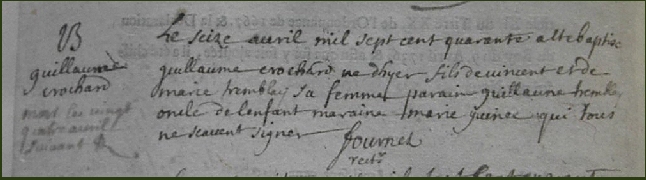 B
guillaume
crochard
mort le vingt
quatre avril
suivant
Le seize avril mil sept cent quarante a este baptisé
guillaume crochard né d'hyer fils de vincent et de
marie tremblay sa femme parain guillaume tremblay
oncle de l'enfant maraine marie guinee qui tous
ne scavent signer
fournel
rectr